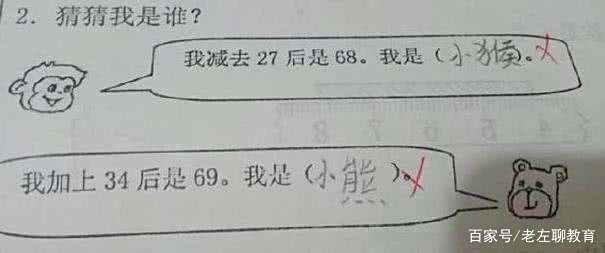 2. 猜猜我是谁？
我减去 27 后是 68。我是（小猴）。
我加上 34 后是 69。我是（小熊）。
百家号/老左聊教育